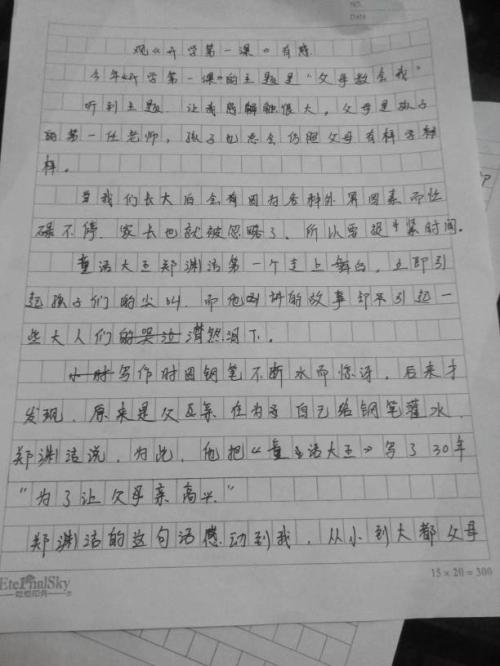 NO.
Date
观《开学第一课》有感
今年《开学第一课》的主题是"父母教会我"
听到主题,让我感触很大,父母是孩子
的第一任老师,孩子也总会仿照父母有样学样
样。
当我们长大后会有因为各种外界因素而忙
碌不停,家长也就被忽略了,所以要抓紧时间。
童话大王郑渊洁第一个走上舞台,立即引
起孩子们的尖叫,而他讲的故事却引起一
些大人们的哭泣潸然泪下。
小时写作时因钢笔不断水而惊讶,后来才
发现,原来是父亲在为自己给钢笔灌水,
郑渊洁说,为此,他把《童话大王》写了30年
"为了让父母亲高兴."
郑渊洁的这句话感动到我,从小到大都父母
EternalSky
15×20=300